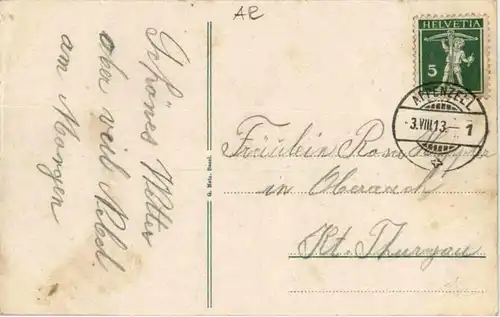 AR
HELVETIA
5
APPENZELL
-3.VIII.13.-1
Schönes Wetter
aber viel Nebel
am Morgen
G. Metz, Basel.
Fräulein Rosa
in Oberaach
Kt. Thurgau